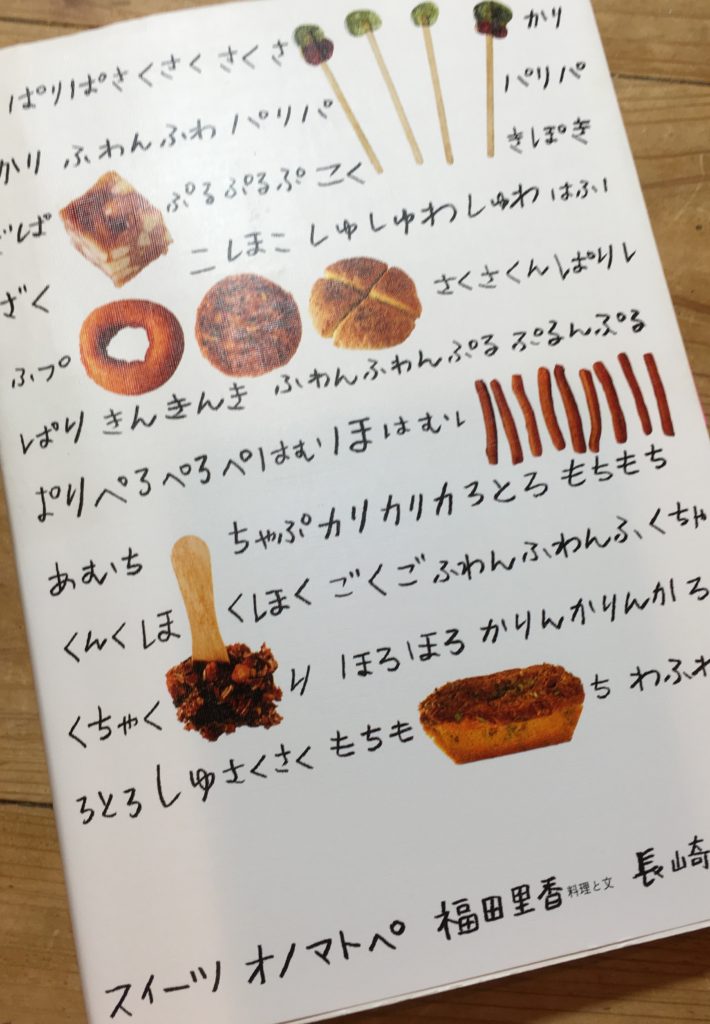 ぱりぱさくさく さくさ かり
かり ふわんふわ パリパ パリパ
ぷるぷるぷ こく きぽき
ごしぱ こしまこ しゅしゅわしゅわ はふし
ざく さくさくんしぱりし
ふっぷ ふわんふわんぷる ぷるんぷる
しぱり きんきんき
ぱりぺろぺろぺ はむりま はむし
あむち ちゃぷカリカリカろとろ もちもち
くんくしま くしまく ごくごふわんふわんふ、くちゃ
くちゃく り ほろほろ かりんかりんかろ
ろとろしゅさくさく もちも ち わふわ
スイーツ オノマトペ 福田里香 料理と文 長崎